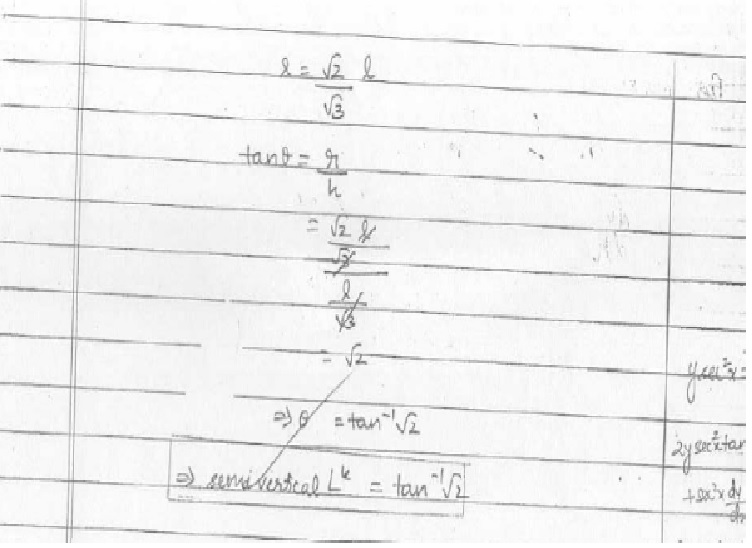 r = √2 l
√3
tanθ = r
h
= √2 l
√3
l
√3
= √2
⇒ θ = tan⁻¹√2
⇒ semivertical ∠le = tan⁻¹√2
y sec²x =
2y sec²x tan
+ sec²x dy
dx